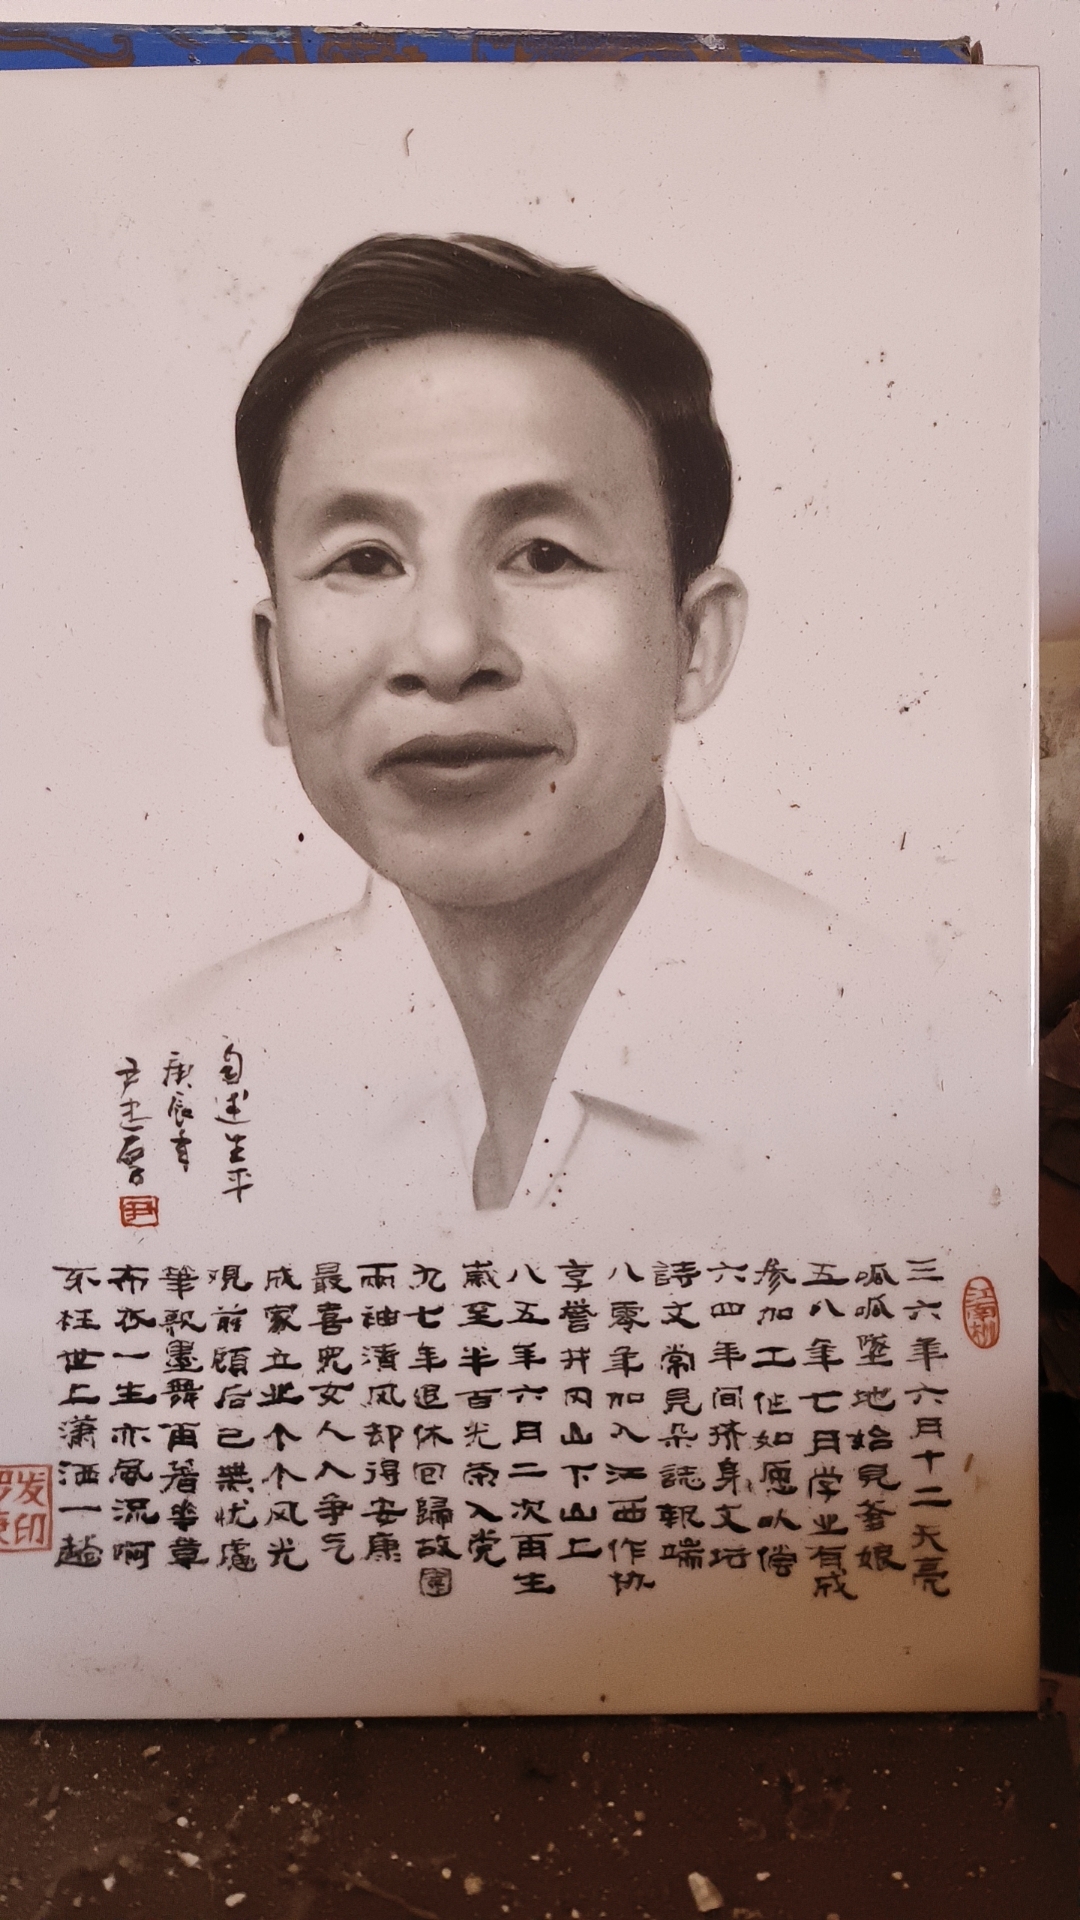 江南柳
三六年六月十二天亮
呱呱墜地始見爹娘
五八年七月学业有成
参加工作如愿以偿
六四年间挤身文坛
詩文常見朵誌報端
八零年加入江西作协
享誉井冈山下山上
八五年六月二次再生
歲至半百光荣入党
九七年退休回歸故園
兩袖清风却得安康
最喜兒女人人争气
成家立业个个风光
观前顧后已無忧慮
筆歌墨舞再著华章
布衣一生亦風流啊
不枉世上潇洒一趟
自述生平
庚辰年
尹
发印